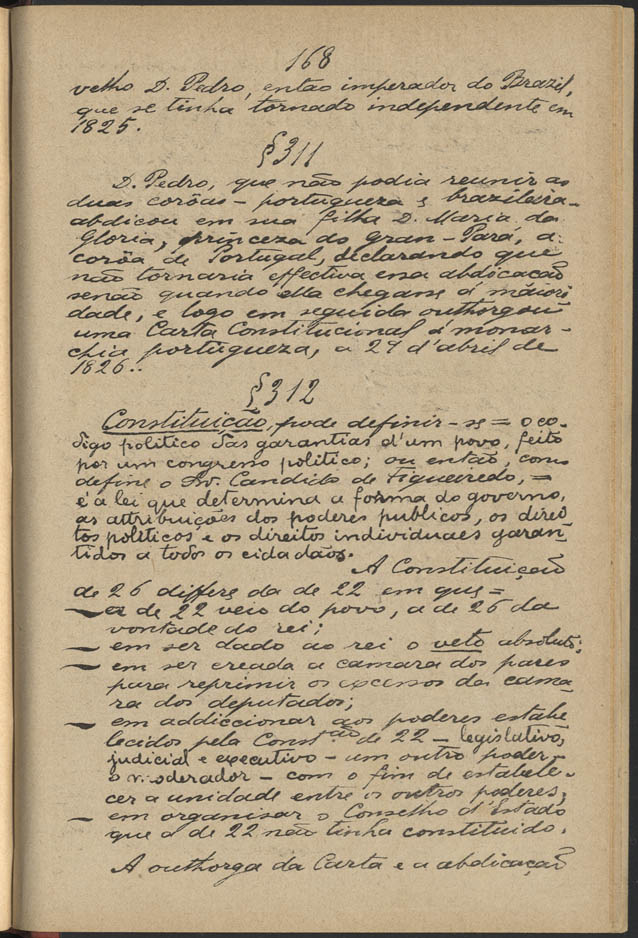 168
velho D. Pedro, então imperador do Brazil,
que se tinha tornado independente em
1825.
§ 311
D. Pedro, que não podia reunir as
duas corôas – portugueza e brazileira –
abdicou em sua filha D. Maria da
Gloria, princeza do Gran-Pará, a
corôa de Portugal, declarando que
não tornaria effectiva essa abdicação
senão quando ella chegasse á maiori
dade, e logo em seguida outhorgou
uma Carta Constitucional á monar-
chia portugueza, a 29 d'abril de
1826..
§ 312
Constituição, pode definir-se = o co-
digo politico das garantias d'um povo, feito
por um congresso politico; ou então, como
define o Dr. Candido de Figueiredo, =
é a lei que determina a fórma do governo,
as attribuições dos poderes publicos, os direi
tos politicos e os direitos individuaes garan-
tidos a todos os cidadãos.
A Constituição
de 26 differe da de 22 em que =
— a de 22 veio do povo, a de 26 da
vontade do rei;
— em ser dado ao rei o veto absoluto;
— em ser creada a camara dos pares
para reprimir os excessos da cama-
ra dos deputados;
— em addiccionar aos poderes estabe
lecidos pela Const.ção de 22 – legislativo,
judicial e executivo – um outro poder –
o moderador – com o fim de estabele-
cer a unidade entre os outros poderes;
— em organisar o Conselho d'Estado
que a de 22 não tinha constituido.
A outhorga da Carta e a abdicação